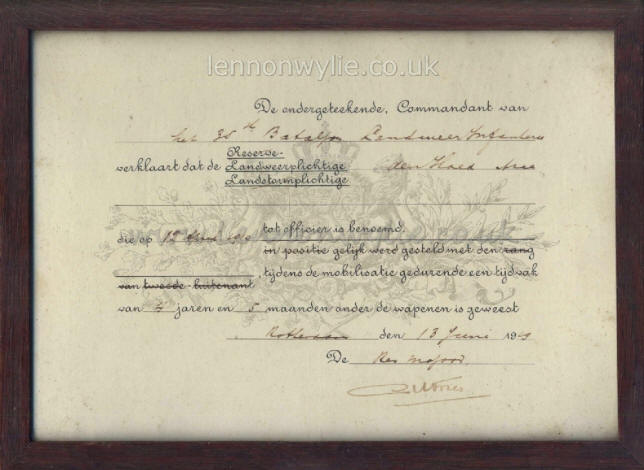 lennonwylie.co.uk
De ondergeteekende, Commandant van
het 35th Bataljon Landweer Infanterie
Reserve-
verklaart dat de Landweerplichtige den Hoed
Landstormplichtige
tot officier is benoemd.
die op
in positie gelijk werd gesteld met den rang
van tweede luitenant, tijdens de mobilisatie gedurende een tijdvak
van 4 jaren en 5 maanden onder de wapenen is geweest
Rotterdam den 13 Juni 19
De Res Majoor